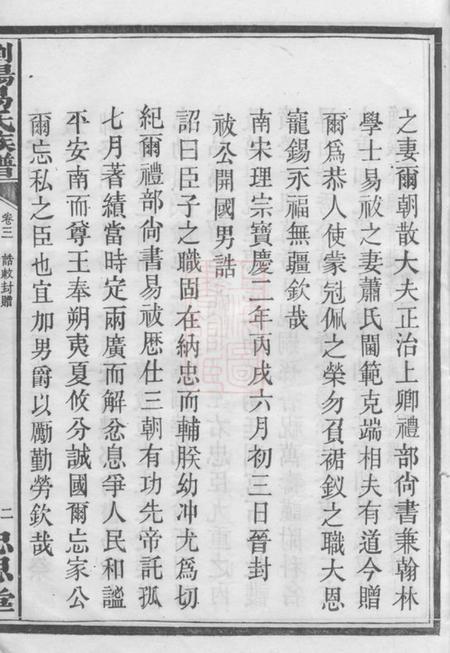 之妻爾朝散大夫正治上卿禮部尚書兼翰林
學士易祓之妻蕭氏閫範克端相夫有道今贈
爾爲恭人使蒙冠佩之榮勿負裙釵之職大恩
寵錫永福無疆欽哉
南宋理宗寶慶二年丙戌六月初三日晉封
祓公開國男誥
詔曰臣子之職固在納忠而輔朕幼冲尤爲切
紀爾禮部尚書易祓歷仕三朝有功先帝託孤
七月著績當時定兩廣而解忿息爭人民和謐
平安南而尊王奉朔夷夏攸分誠國爾忘家公
爾忘私之臣也宜加男爵以勵勤勞欽哉
瀏陽易氏族譜
卷三
誥敕封贈
二
忠思堂